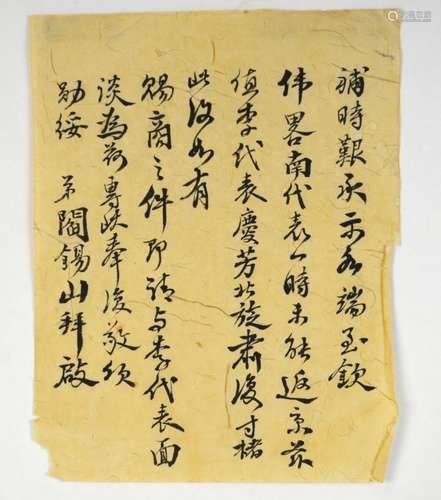 補時艱承示各端至欽
偉畧南代表一時未能返京茲
值李代表慶芳北旋肅復寸楮
此後如有
賜商之件即請与李代表面
談為荷專此奉復敬頌
勛綏 弟閻錫山拜啟